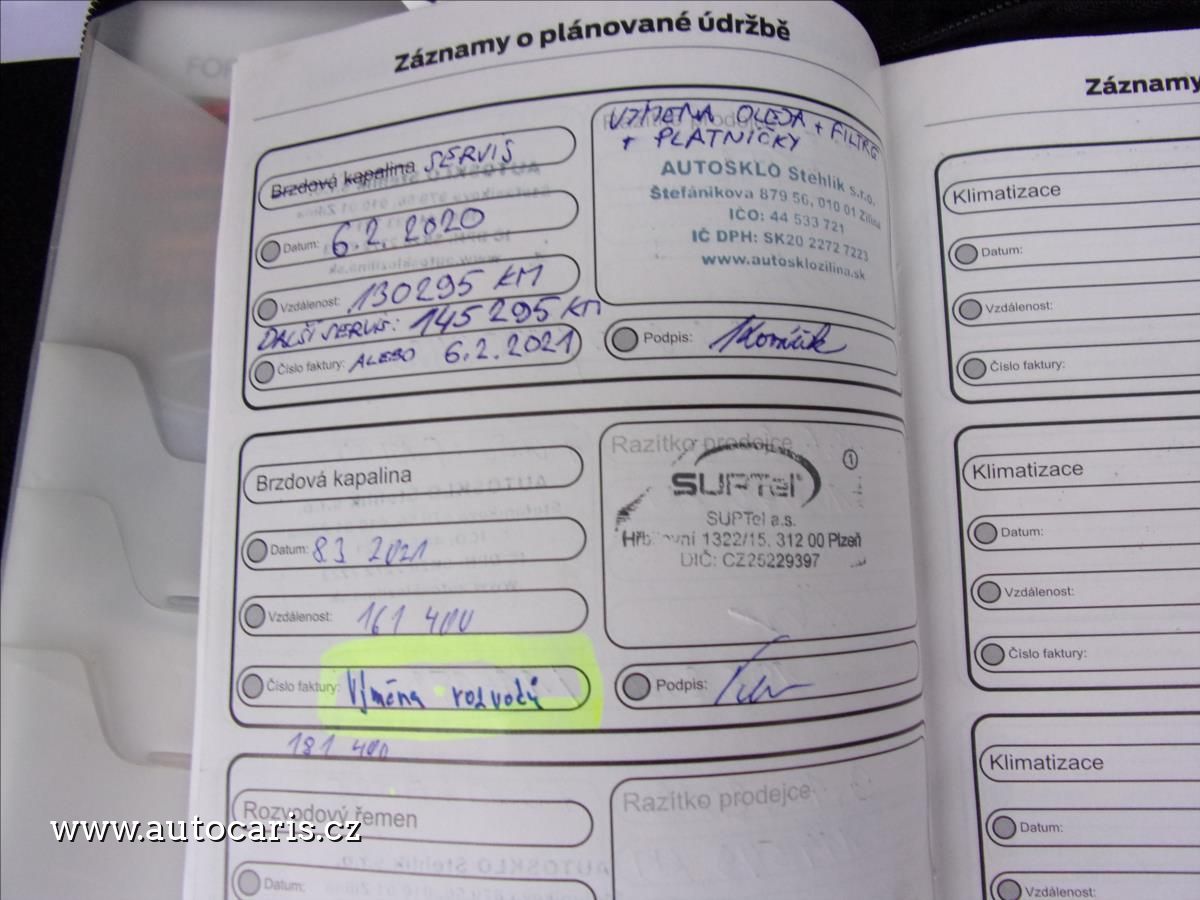 FOR
Záznamy o plánované údržbě
Brzdová kapalina SERVIS
Datum: 6.2.2020
Vzdálenost: 130295 KM
DALŠÍ SERVIS: 145295 KM
Číslo faktury: ALEBO 6.2.2021
VÝMENA OLEJA + FILTRE
+ PLATNIČKY
AUTOSKLO Stehlík s.r.o.
Štefánikova 879 56, 010 01 Žilina
IČO: 44 533 721
IČ DPH: SK20 2272 7223
www.autosklozilina.sk
Podpis:
Brzdová kapalina
Datum: 8 3 2021
Vzdálenost: 161 400
Číslo faktury: Výměna rozvodů
181 400
Razítko prodejce
1
SUPTel
SUPTel a.s.
Hřbitovní 1322/15, 312 00 Plzeň
DIČ: CZ25229397
Podpis:
Rozvodový řemen
Datum:
Razítko prodejce
Záznamy
Klimatizace
Datum:
Vzdálenost:
Číslo faktury:
Klimatizace
Datum:
Vzdálenost:
Číslo faktury:
Klimatizace
Datum:
Vzdálenost:
www.autocaris.cz